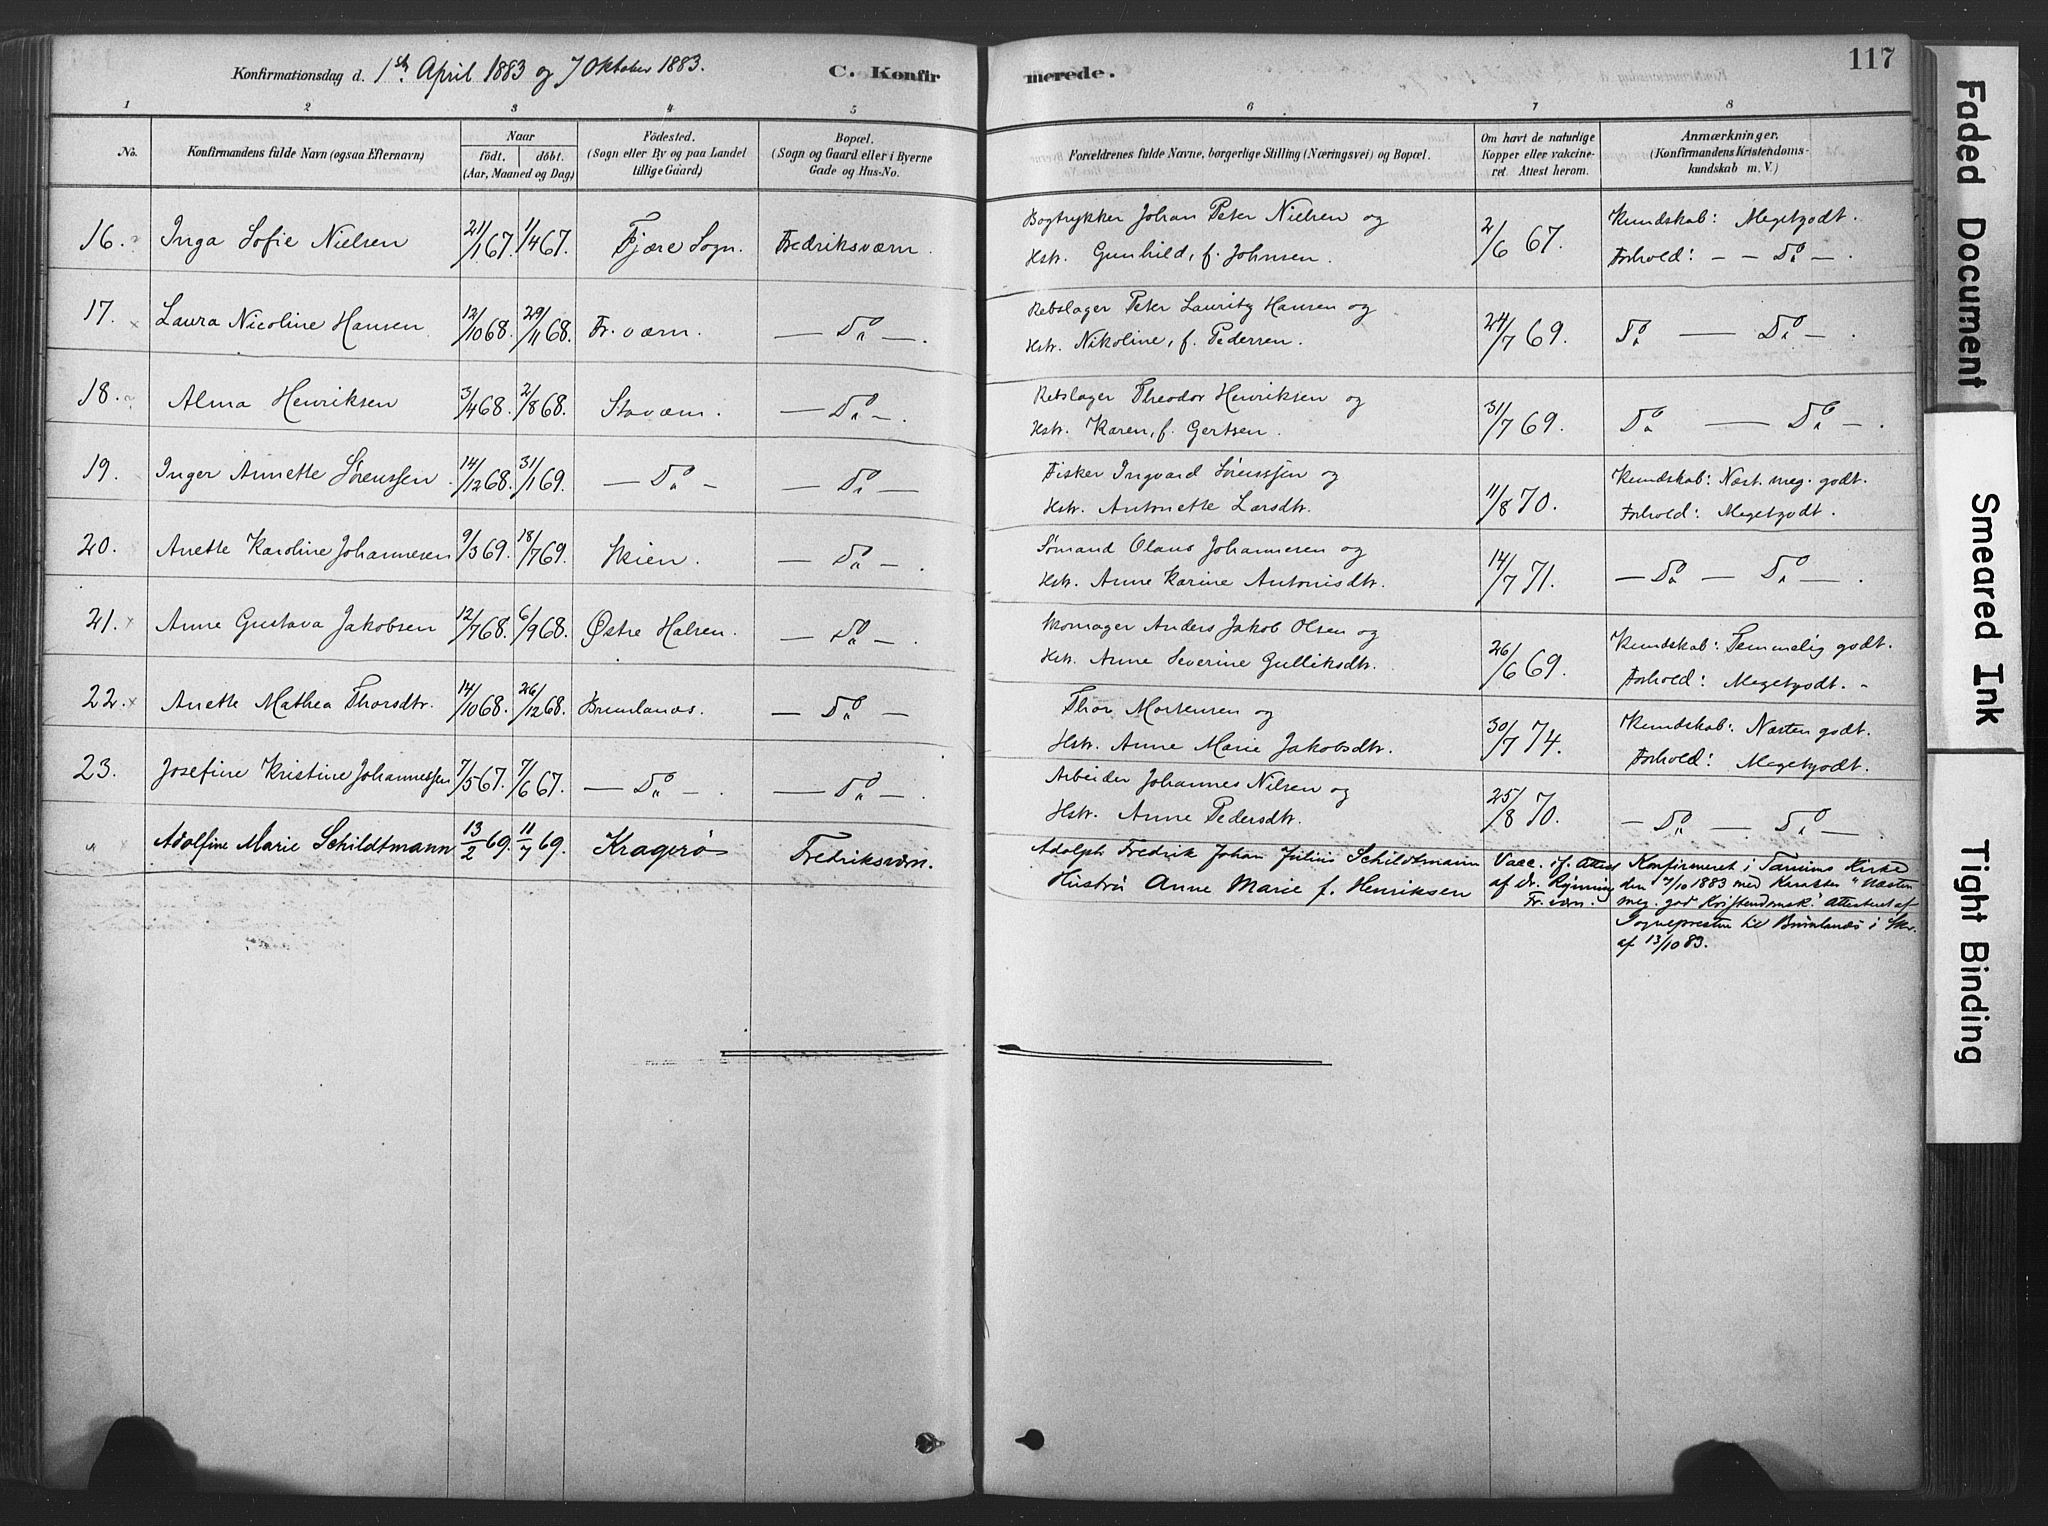 Konfirmationsdag d. 1ste April 1883 og 7 Oktober 1883.
C. Konfirmerede.
117
1 2 3 4 5 6 7 8
No.
Konfirmandens fulde Navn (ogsaa Efternavn)
Naar
født. døbt.
(Aar, Maaned og Dag)
Födested.
(Sogn eller By og paa Landet
tillige Gaard)
Bopæl.
(Sogn og Gaard eller i Byerne
Gade og Hus-No.
Forældrenes fulde Navne, borgerlige Stilling (Næringsvei) og Bopæl.
Om havt de naturlige
Kopper eller vakcine-
ret. Attest herom.
Anmærkninger.
(Konfirmandens Kristendoms-
kundskab m. V.)
16. Inga Sofie Nielsen 21/1 67. 1/4 67. Fjære Sogn. Fredriksværn.
Bogtrykker Johan Peter Nielsen og
Hstr. Gunhild, f. Johnsen.
2/6 67.
Kundskab: Megetgodt.
Forhold: — — Do —.
17. Laura Nicoline Hansen 12/10 68. 29/11 68. Fr.værn. — Do —.
Rebslager Peter Lauritz Hansen og
Hstr. Nikoline, f. Pedersen.
24/7 69.
Do — Do —.
18. Alma Henriksen 3/4 68. 2/8 68. Staværn. — Do —
Rebslager Theodor Henriksen og
Hstr. Karen, f. Gertsen.
31/7 69.
Do — Do —.
19. Inger Annette Sørenssen 14/12 68. 31/1 69. — Do — — Do —
Fisker Ingvard Sørenssen og
Hstr. Antonette Larsdtr.
11/8 70.
Kundskab: Næst. meg. godt.
Forhold: Megetgodt.
20. Anette Karoline Johannesen 9/5 69. 18/7 69. Skien. — Do —.
Sømand Olaus Johannesen og
Hstr. Anne Karine Antonisdtr.
14/7 71.
— Do — Do —.
21. Anne Gustava Jakobsen 12/7 68. 6/9 68. Østre Halsen. — Do —
Skomager Anders Jakob Olsen og
Hstr. Anne Severine Gulliksdtr.
26/6 69.
Kundskab: Temmelig godt.
Forhold: Megetgodt. -
22. Anette Mathea Thorsdtr. 14/10 68. 26/12 68. Brunlanæs. — Do —
Thor Mortensen og
Hstr. Anne Marie Jakobsdtr.
30/7 74.
Kundskab: Næsten godt.
Forhold: Megetgodt.
23. Josefine Kristine Johannessen 7/5 67. 7/6 67. — Do —. — Do —.
Arbeider Johannes Nilsen og
Hstr. Anne Pedersdtr.
25/8 70.
— Do — Do —
" Adolfine Marie Schildtmann 13/2 69. 11/7 69. Kragerø Fredriksværn.
Adolph Fredrik Johan Julius Schildtmann
Hustru Anne Marie f. Henriksen
Vacc. if. Attest
af Dr. Rynning
Fr.værn.
Konfirmeret i Tanums Kirke
den 7/10 1883 med Karakter "Næsten
meg. god Kristendomsk." Attesteret af
Sognepresten til Brunlanæs i Skr.
af 13/10 83.
Faded Document
Smeared Ink
Tight Binding